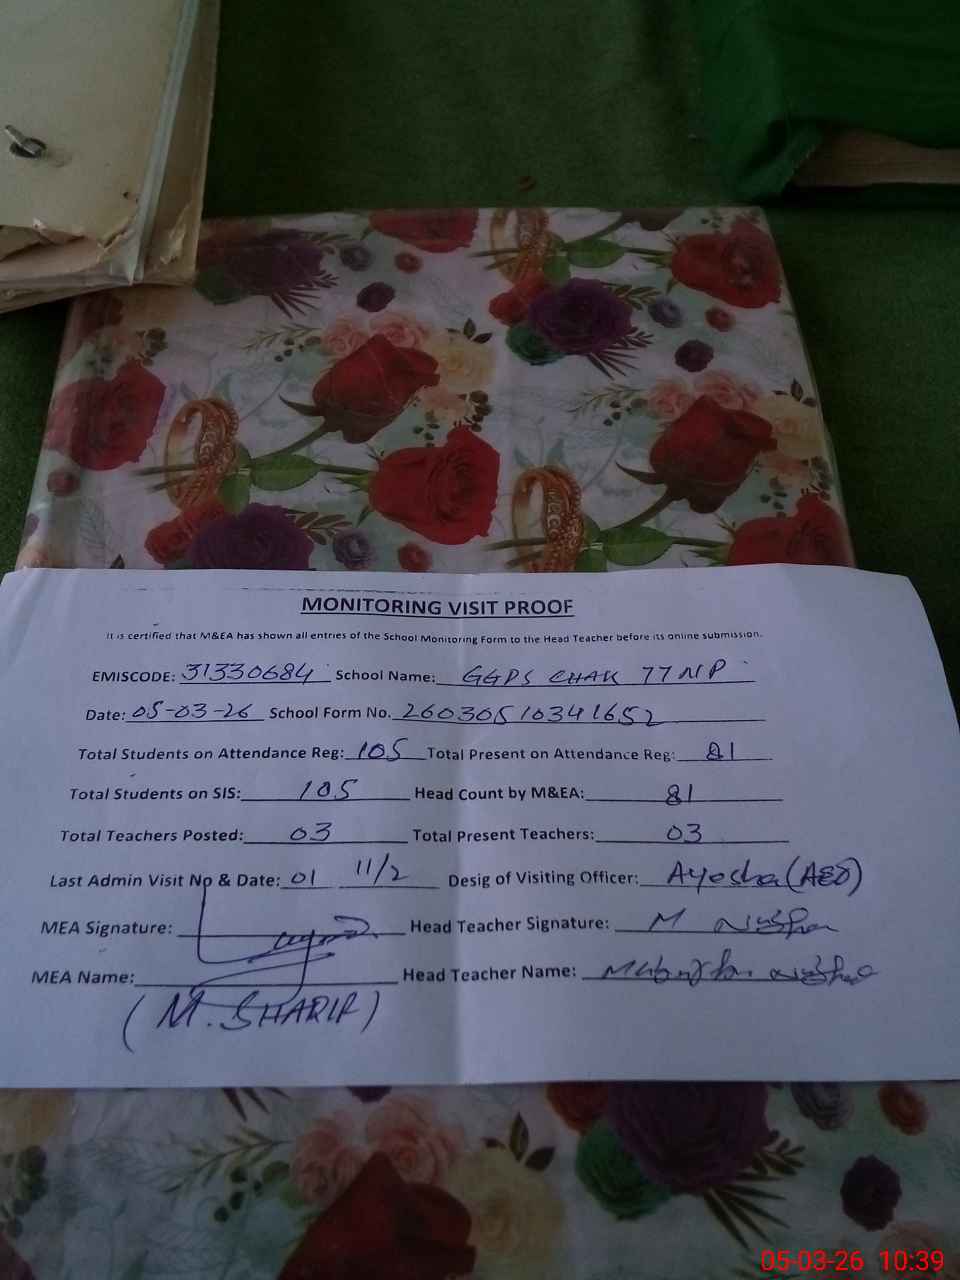 MONITORING VISIT PROOF
It is certified that M&EA has shown all entries of the School Monitoring Form to the Head Teacher before its online submission.
EMISCODE: 31330684 School Name: GGPS CHAK 77 NP
Date: 05-03-26 School Form No. 26030510341652
Total Students on Attendance Reg: 105 Total Present on Attendance Reg: 81
Total Students on SIS: 105 Head Count by M&EA: 81
Total Teachers Posted: 03 Total Present Teachers: 03
Last Admin Visit No & Date: 01 11/2 Desig of Visiting Officer: Ayesha (AEO)
MEA Signature: Head Teacher Signature: M
MEA Name: Head Teacher Name:
(M. SHARIF)
05-03-26 10:39